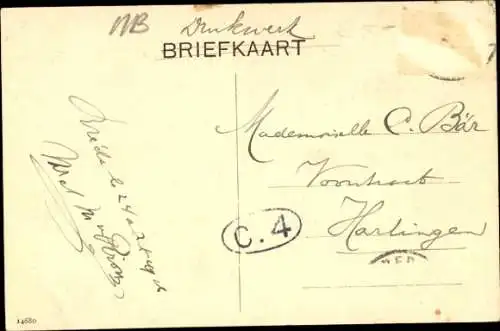 NB Drukwerk
BRIEFKAART
Mademoiselle C. Bär
Voorstraat
Harlingen
C. 4
Bréda le 24
14680